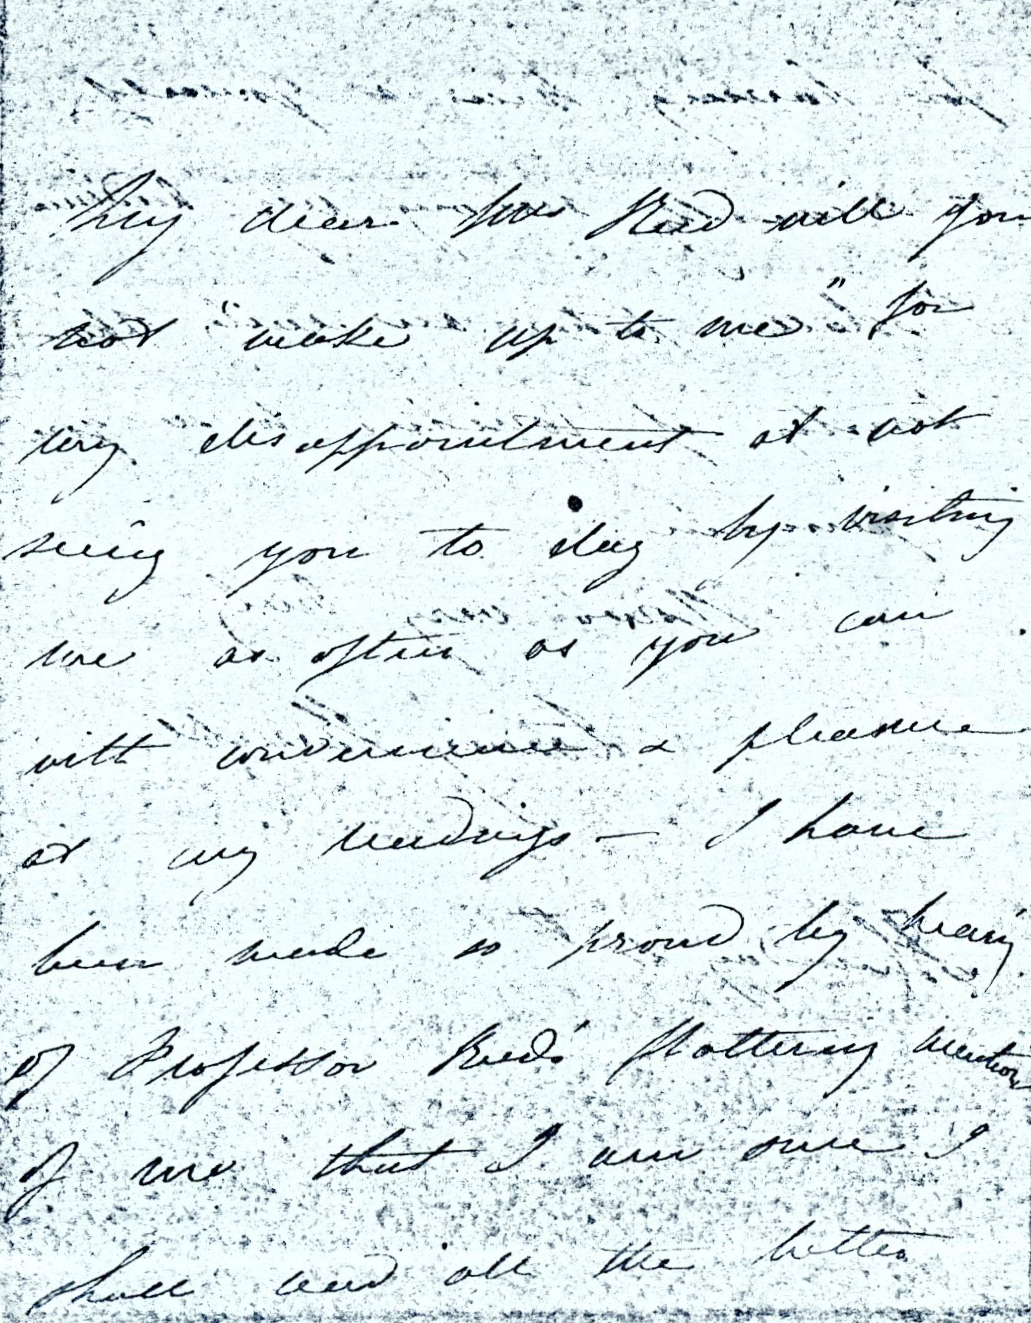 My dear Mrs Reed will you
not "make up to me" for
my disappointment at not
seeing you to day by visiting
me as often as you can
with convenience & pleasure
at my readings — I have
been made so proud by hearing
of Professor Reed's flattering mention
of me that I am sure I
shall read all the better